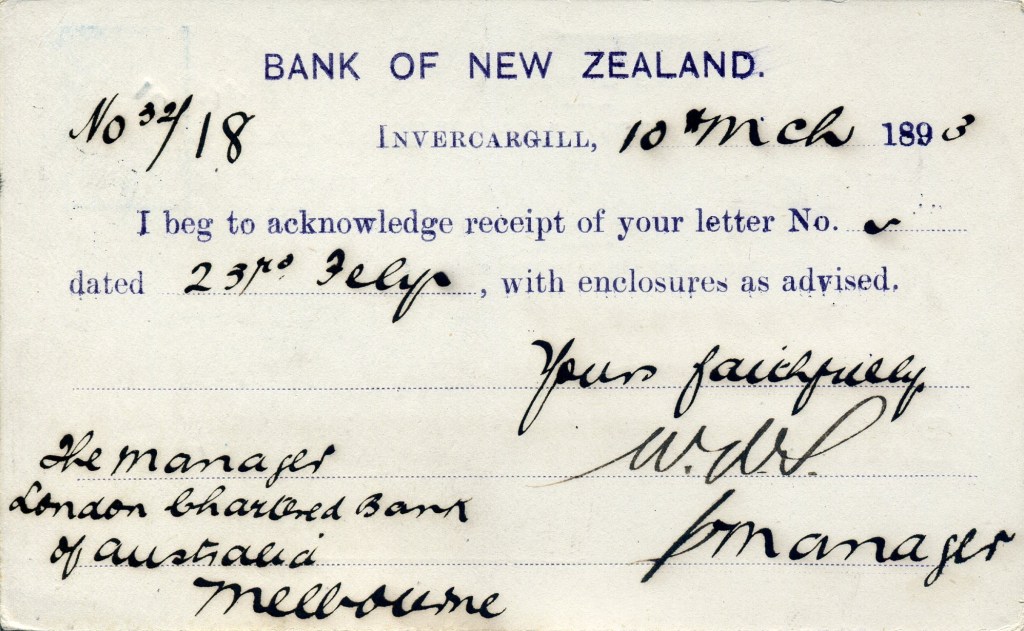 BANK OF NEW ZEALAND.
No 32/18 INVERCARGILL, 10th Mch 1893
I beg to acknowledge receipt of your letter No.
dated 23rd Feby, with enclosures as advised.
Yours faithfully
The Manager
London Chartered Bank
of Australia
Melbourne
Manager